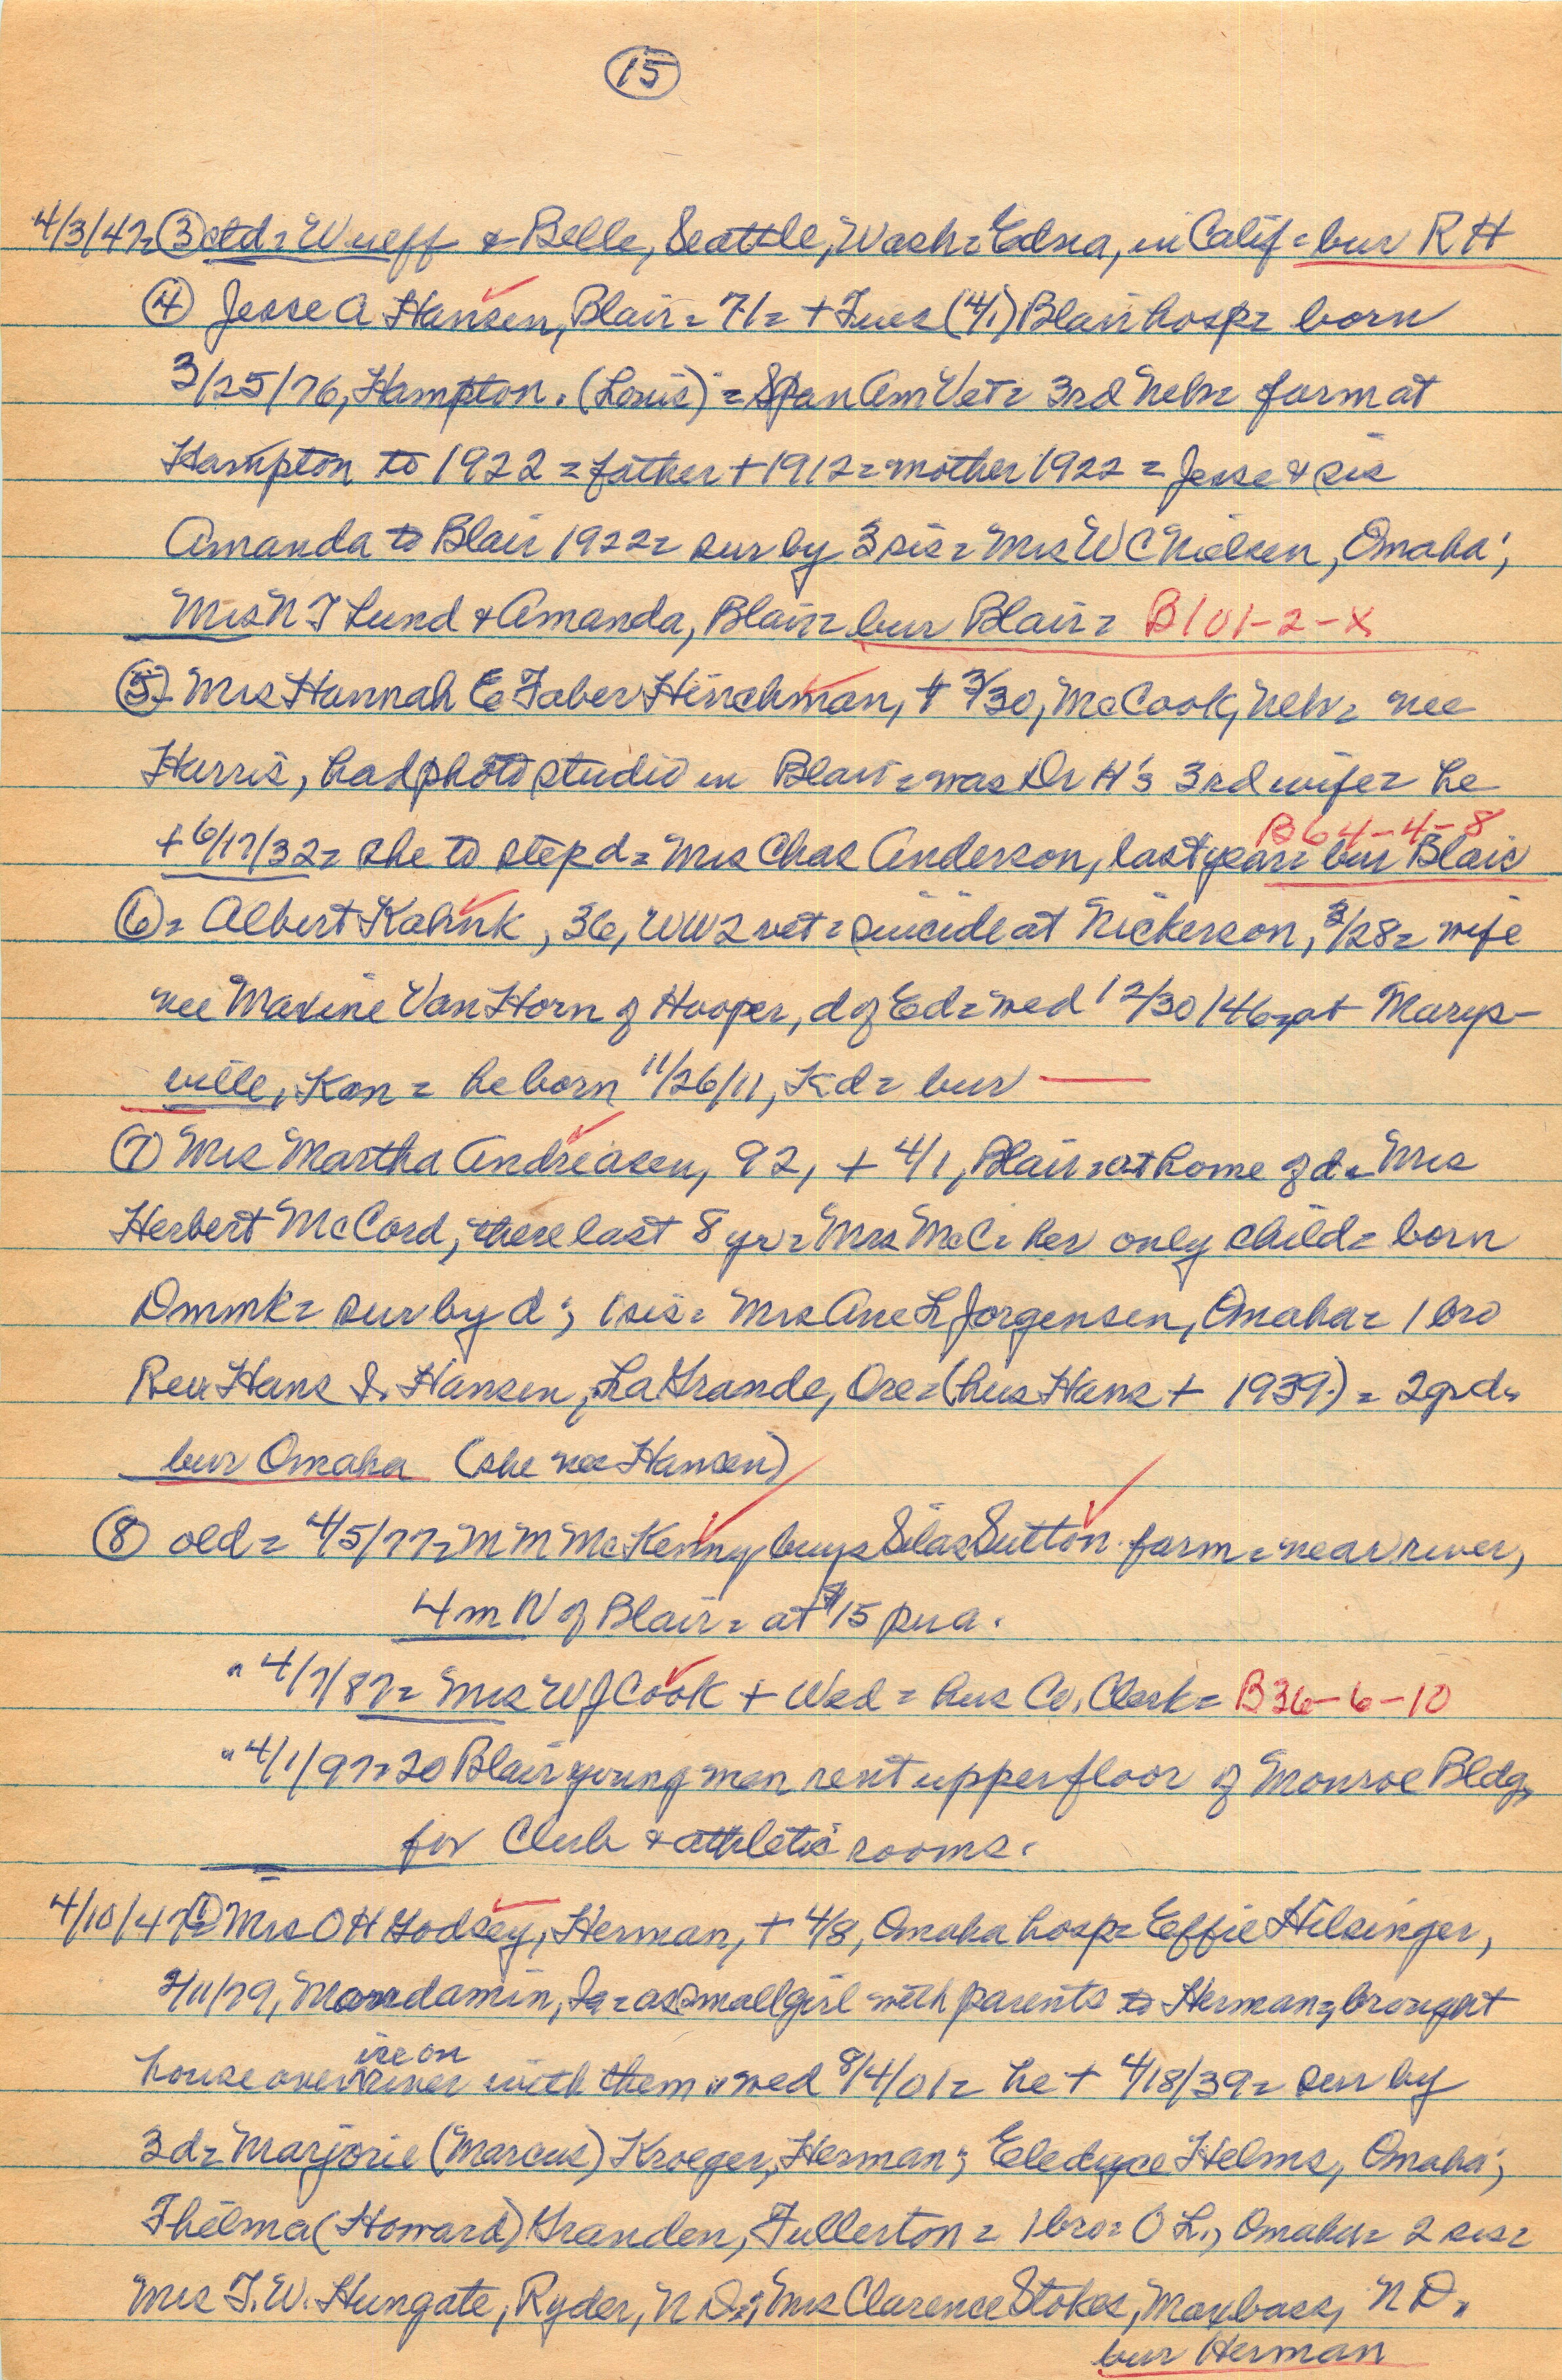 15
4/3/47= ③ ctd= Wulff & Belle, Seattle, Wash= Edna, in Calif= bur RH
④ Jesse A Hansen, Blair= 71= + Tues (4/1) Blair hosp= born
3/25/76, Hampton. (Louis)= Span Am Vet= 3rd Nebr= farm at
Hampton to 1922= father + 1912= mother 1922= Jesse & sis
Amanda to Blair 1922= sur by 3 sis= Mrs W C Nielsen, Omaha;
Mrs N T Lund & Amanda, Blair= bur Blair= B101-2-X
⑤ Mrs Hannah E Faber Hinchman, + 3/30, McCook, Nebr= nee
Harris, had photo studio in Blair= was Dr H's 3rd wife= he
+ 6/17/32= she to step d= Mrs Chas Anderson, last year= bur Blair
B64-4-8
⑥= Albert Kahnk, 36, WW2 vet= suicide at Nickerson, 3/28= wife
nee Maxine Van Horn of Hooper, d of Ed= wed 12/30/46= at Marys-
ville, Kan= he born 11/26/11, Kd= bur —
⑦ Mrs Martha Andreasen, 92, + 4/1, Blair= at home of d= Mrs
Herbert McCord, there last 8 yr= Mrs McC= her only child= born
Dmmk= sur by d; 1 sis= Mrs Ane L Jorgensen, Omaha= 1 bro
Rev Hans I. Hansen, LaGrande, Ore= (hus Hans + 1939.)= 2 grd=
bur Omaha (she nee Hansen)
⑧ old= 4/5/77= M M McKenny buys Silas Sutton farm= near river,
4 m N of Blair= at $15 per a.
" 4/7/87= Mrs W J Cook + Wed= hus Co. Clerk= B36-6-10
" 4/1/97= 20 Blair young men rent upper floor of Monroe Bldg,
for Club & athletic rooms.
4/10/47= ① Mrs O H Godsey, Herman, + 4/8, Omaha hosp= Effie Hilsinger,
2/11/79, Mondamin, Ia= as small girl with parents to Herman= brought
ice on
house over river with them= wed 8/4/01= he + 4/18/39= sur by
3 d= Marjorie (Marcus) Kroeger, Herman; Eledyce Helms, Omaha;
Thelma (Howard) Granden, Fullerton= 1 bro= O L., Omaha= 2 sis=
Mrs T. W. Hungate, Ryder, N D=; Mrs Clarence Stokes, Maxbass, N D=
bur Herman